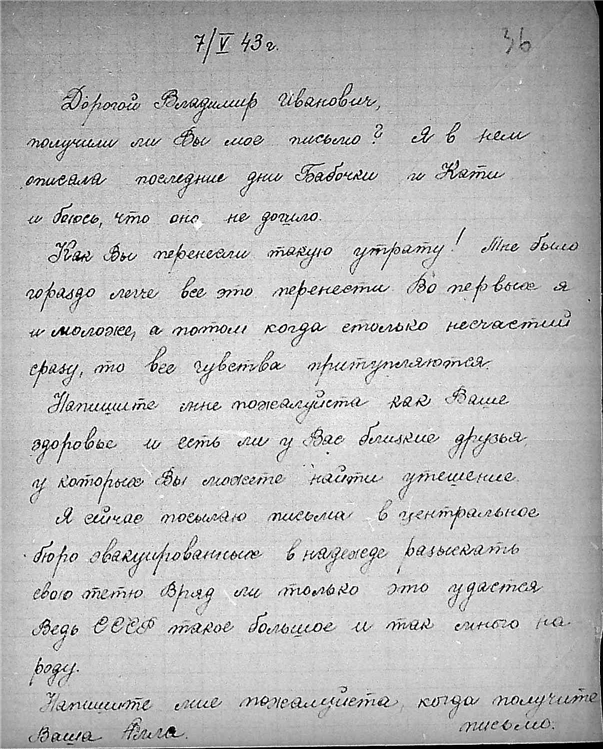 7/V 43 г.
36
Дорогой Владимир Иванович,
получили ли Вы мое письмо? Я в нем
описала последние дни Бабочки и Кати
и боюсь, что оно не дошло.
Как Вы перенесли такую утрату! Мне было
гораздо легче все это перенести. Во первых я
и моложе, а потом когда столько несчастий
сразу, то все чувства притупляются.
Напишите мне пожалуйста как Ваше
здоровье и есть ли у Вас близкие друзья
у которых Вы можете найти утешение.
Я сейчас посылаю письма в центральное
бюро эвакуированных в надежде разыскать
свою тетю Вряд ли только это удастся
Ведь СССР такое большое и так много на
роду.
Напишите мне пожалуйста, когда получите
письмо.
Ваша